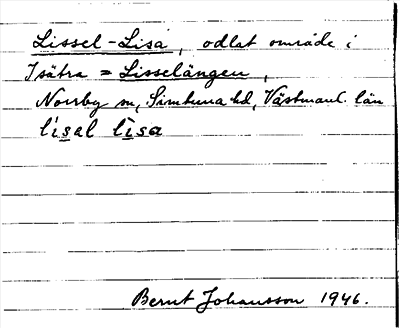 Lissel-Lisa, odlat område i
Isätra = Lisselängen,
Norrby sn, Simtuna hd, Västmanl. län
lìsal lìsa
Bernt Johansson 1946.